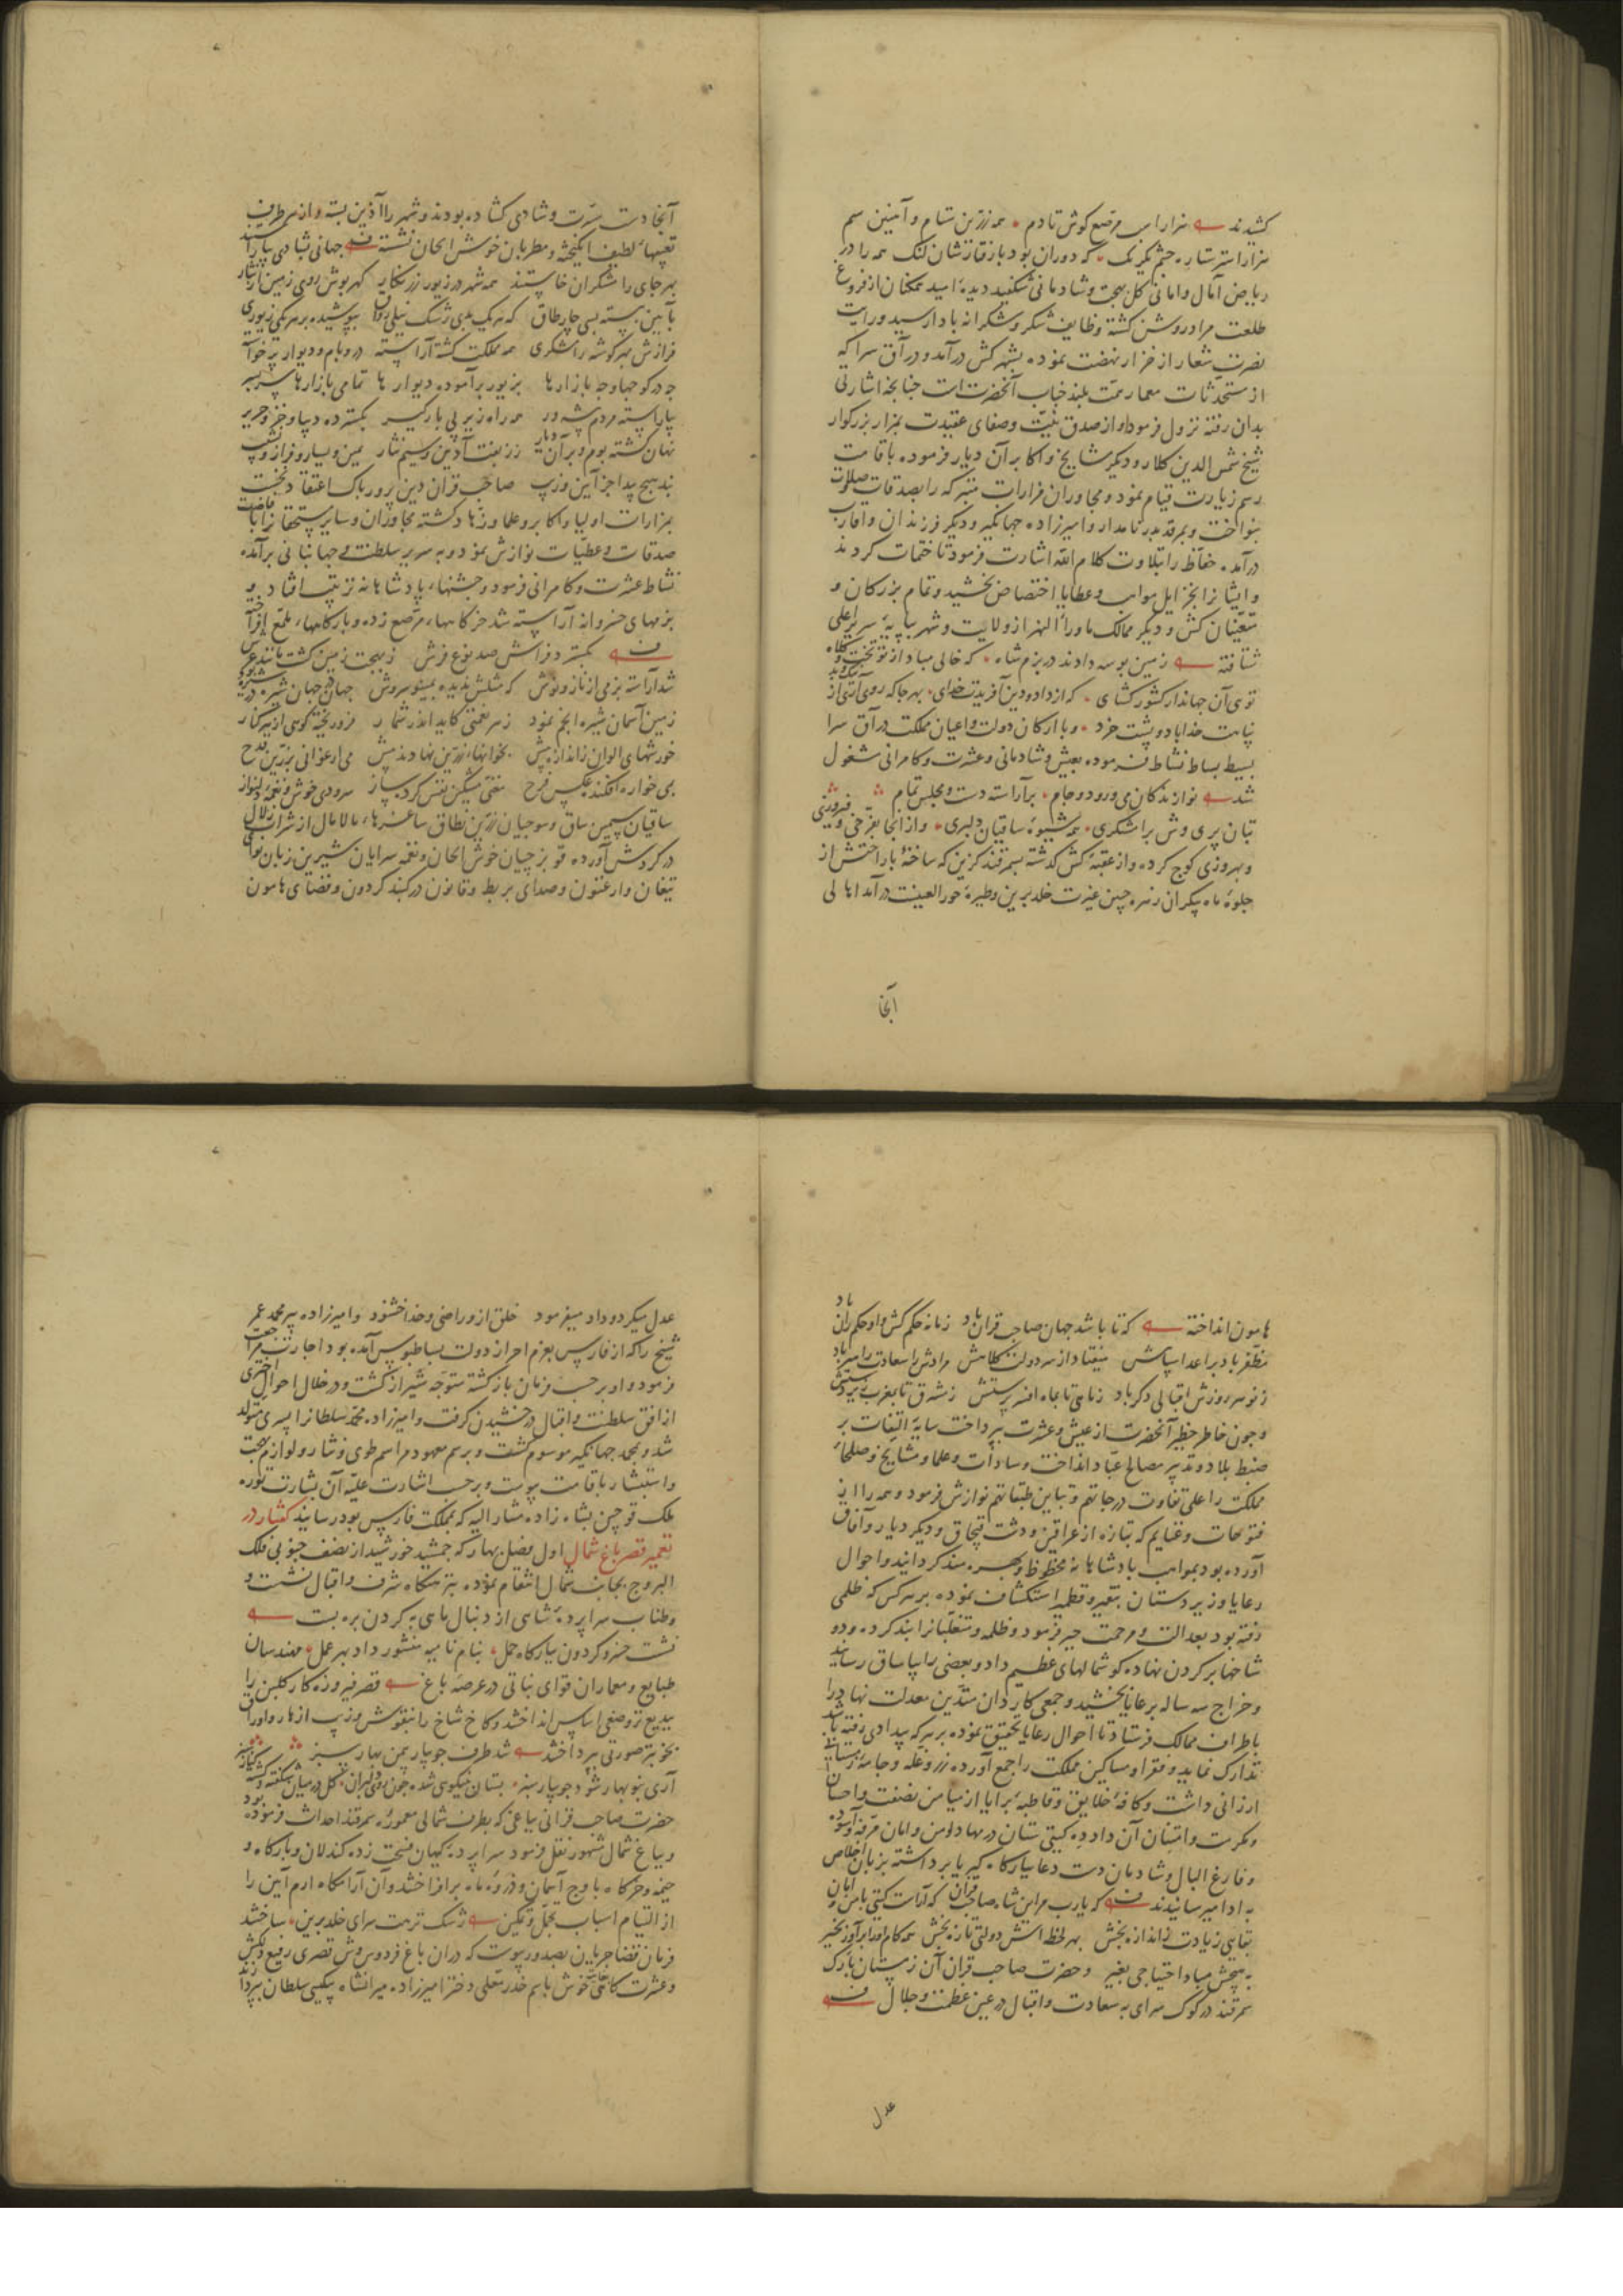 کشیدند هزار اسب مرصع کوش تا دم همه زرین ستام و آهنین سم
هزار استر ستاره چشم یکرنک که دوران بود با رفتارشان لنک همه را در
ریاض آمال و امانی کل بهجت و شادمانی شکفید دیدهٔ امید همکنان از فروغ
طلعت مراد روشن کشته وظایف شکر و شکرانه بادا رسید و رایت
نصرت شعار از خزار نهضت نموده بشهر کش درآمد و در آق سرا که
از مستحدثات معمار همت بلند جناب آنحضرت است چنانچه اشارتی
بدان رفته نزول فرمود و از صدق نیت و صفای عقیدت بمزار بزرکوار
شیخ شمس الدین کلار و دیکر مشایخ و اکابر آن دیار فرموده باقامت
رسم زیارت قیام نمود و مجاوران مزارات متبرکه را بصدقات و صلات
بنواخت و بمرقد پدر نامدار و امیرزاده جهانکیر و دیکر فرزندان و اقارب
درآمد حفاظ را بتلاوت کلام الله اشارت فرمود تا ختمات کردند
و ایشانرا بجزایل مواهب و عطایا اختصاص بخشید و تمام بزرکان و
متعینان کش و دیکر ممالک ماوراء النهر از ولایت و شهر بپایهٔ سریر اعلی
شتافته زمین بوسه دادند در بزم شاه که خالی مباد از تو تخت و کلاه
توی آن جهاندار کشورکشای که از داد و دین آفریدت خدای بهر جا که روی آری از
نیابت خدا باد و پشت خرد و با ارکان دولت و اعیان مملکت در آق سرا
بسیط بساط نشاط فرموده بعیش و شادمانی و عشرت و کامرانی مشغول
شد نوازندکان می و رود و جام برآراسته دست و مجلس تمام
بتان پری وش برامشکری همه شیوهٔ ساقیان دلبری و از آنجا بفرخی و فیروزی
و بهروزی کوچ کرده و از عقبهٔ کش کذشته بسمرقند کزین که ساحتهٔ با راحتش از
جلوهٔ ماه پیکران زهره جبین غیرت خلد برین و طیرهٔ حور العینست درآمد اهالی
آنجا
آنجا دست مسرت و شادی کشاده بودند و شهر را آذین بسته و از هر طرف
تعبیهاء لطیف انکیخته و مطربان خوش الحان نشسته جهانی بشادی بیاراستند
بهر جای رامشکران خاستند همه شهر در زیور زرنکار کهرپوش روی زمین از نثار
بآیین ببسته بسی چار طاق که هر یک بدی رشک نیلی رواق بپوشیده بر هر یکی زیوری
فرازش بهر کوشه رامشکری همه مملکت کشته آراسته در و بام و دیوار پرخواسته
چه در کوچها و چه بازارها بزیور برآموده دیوارها تمامی بازارها سربسر
بیاراسته مردم پیشه ور همه راه زیر پی بارکیر بکسترده دیبا و خز و حریر
نهان کشته بوم و بر آن دیار ز زربفت آذین و سیم نثار یمین و یسار و فراز و نشیب
بد هیچ پیدا جز آیین و زیب صاحب قران دین پرور پاک اعتقاد نخست
بمزارات اولیا و اکابر و علما و زهاد کشته مجاوران و سایر مستحقانرا بافاضت
صدقات و عطیات نوازش نمود و به سریر سلطنت و جهانبانی برآمده
نشاط عشرت و کامرانی فرمود و جشنهاء پادشاهانه ترتیب افتاد و
بزمهای خسروانه آراسته شد خرکاهها، مرصع زده و بارکاهها، ملمع افراخته
بکسترد فراش صد نوع فرش ز بهجت زمین کشت مانند عرش
شد آراسته بزمی از ناز و نوش که مثلش ندیده بمینو سروش
زمین آسمان شیره انجم نمود ز هر نعمتی کاید اندر شمار فرو ریخته کوسی از هر کنار
خورشهای الوان ز اندازه بیش بخوانهاء زرین نهادند پیش می ارغوانی بزرین قدح
بمی خواره افکند عکس فرح مغنی مشکین نفس کرد ساز سرودی خوش و نغمهٔ دلنواز
ساقیان سیمین ساق و سوجیان زرین نطاق ساغرهاء مالامال از شراب زلال
در کردش آورده قوبزچیان خوش الحان و نغمه سرایان شیرین زبان نوای
یتغان و ارغنون و صدای بربط و قانون در کنبد کردون و فضای هامون
هامون انداخته که تا باشد جهان صاحب قران باد زمانه حکم کش او حکم ران باد
مظفر باد بر اعدا سپاهش میفتاد از سر دولت کلاهش مرادش را سعادت راهبر باد
ز نو هر روزش اقبالی دکر باد ز ماهی تا بماه افسر پرستش ز مشرق تا بمغرب زیر دستش
و چون خاطر خطیر آنحضرت از عیش و عشرت بپرداخت سایهٔ التفات بر
ضبط بلاد و تدبیر مصالح عباد انداخت و سادات و علما و مشایخ و صلحاء
مملکت را علی تفاوت درجاتهم و تباین طبقاتهم نوازش فرمود و همه را از
فتوحات و غنایم که بتازه از عراقین و دشت قبچاق و دیکر دیار و آفاق
آورده بود بمواهب پادشاهانه محظوظ و بهره مند کردانید و احوال
رعایا و زیردستان بنقیر و قطمیر استکشاف نموده بر هر کس که ظلمی
رفته بود بعدالت و مرحمت جبر فرمود و ظلمه و متغلبانرا بند کرده و دو
شاخها بر کردن نهاده کوشمالهای عظیم داد و بعضی را بیاساق رسانید
و خراج سه ساله برعایا بخشید و جمعی کاردان متدین معدلت نهاد را
باطراف ممالک فرستاد تا احوال رعایا تحقیق نموده بر هر که بیدادی رفته باشد
تدارک نماید و فقرا و مساکین مملکت را جمع آورده زر و غله و جامه
ارزانی داشت و کافهٔ خلایق و قاطبهٔ برایا از میامن نصفت و احسان
و مکرمت و امتنان آن داد ده کیتی ستان در مهاد امن و امان مرفه و آسوده
و فارغ البال و شادمان دست دعا ببارکاه کبریا برداشته بزبان اخلاص
به ادا میرسانیدند که یارب مر این شاه صاحب قران که آراست کیتی بامن و امان
بقایی زیادت ز اندازه بخش بهر لحظه اش دولتی تازه بخش همه کام او را برآور بخیر
به هیچش مباد احتیاجی بغیر و حضرت صاحب قران آن زمستان بارک
سمرقند در کوک سرای به سعادت و اقبال در عین عظمت و جلال
عدل
عدل میکرد و داد میفرمود خلق ازو راضی و خدا خشنود و امیرزاده پیر محمد عمر
شیخ را که از فارس بعزم احراز دولت بساط بوس آمده بود اجازت مراجعت
فرمود و او بر حسب فرمان بازکشته متوجه شیراز کشت و در خلال احوال اختری
از افق سلطنت و اقبال درخشیدن کرفت و امیرزاده محمد سلطانرا پسری متولد
شد و بمحمد جهانکیر موسوم کشت و برسم معهود مراسم طوی و نثار و لوازم بهجت
و استبشار باقامت پیوست و بر حسب اشارت علیه آن بشارت توره
ملک قوچین بشاه زاده مشار الیه که بمملکت فارس بود رسانید کفتار در
تعمیر قصر باغ شمال اول فصل بهار که جمشید خورشید از نصف جنوبی فلک
البروج بجانب شمال انتقام نموده بنزهتکاه شرف و اقبال نشست و
و طناب سراپردهٔ شاهی از دنبال ماهی به کردن بره بست
نشست خسرو کردون ببارکاه حمل بنام نامیه منشور داد بهر عمل مهندسان
طبایع و معماران قوای نباتی در عرصهٔ باغ قصر فیروزه کار کلبن را
ببدیع تر وضعی اساس انداختند و کاخ شاخ را بنقوش و زیب ازهار و اوراق
بخوبتر صورتی بپرداختند شد طرف جویبار چمن بهار سبز
آری بنوبهار شود جویبار سبز بستان نیکوی شده چون روی دلبران کل در میان شکفته و
حضرت صاحب قرانی بباغی که بطرف شمالی معمورهٔ سمرقند احداث فرموده بود
و بباغ شمال مشهور نقل فرمود سراپردهٔ کیهان فسحت زده کندلان و بارکاه و
خیمه و خرکاه باوج آسمان و ذروهٔ ماه برافراختند و آن آرامکاه ارم آیین را
از التیام اسباب تجمل و تمکین رشک نزهت سرای خلد برین ساختند
فرمان قضا جریان بصدور پیوست که در آن باغ فردوس وش قصری رفیع دلکش
و عشرت کاهی خوش باسم خدر معلی دختر امیرزاده میرانشاه بیکیسی سلطان بپردازند